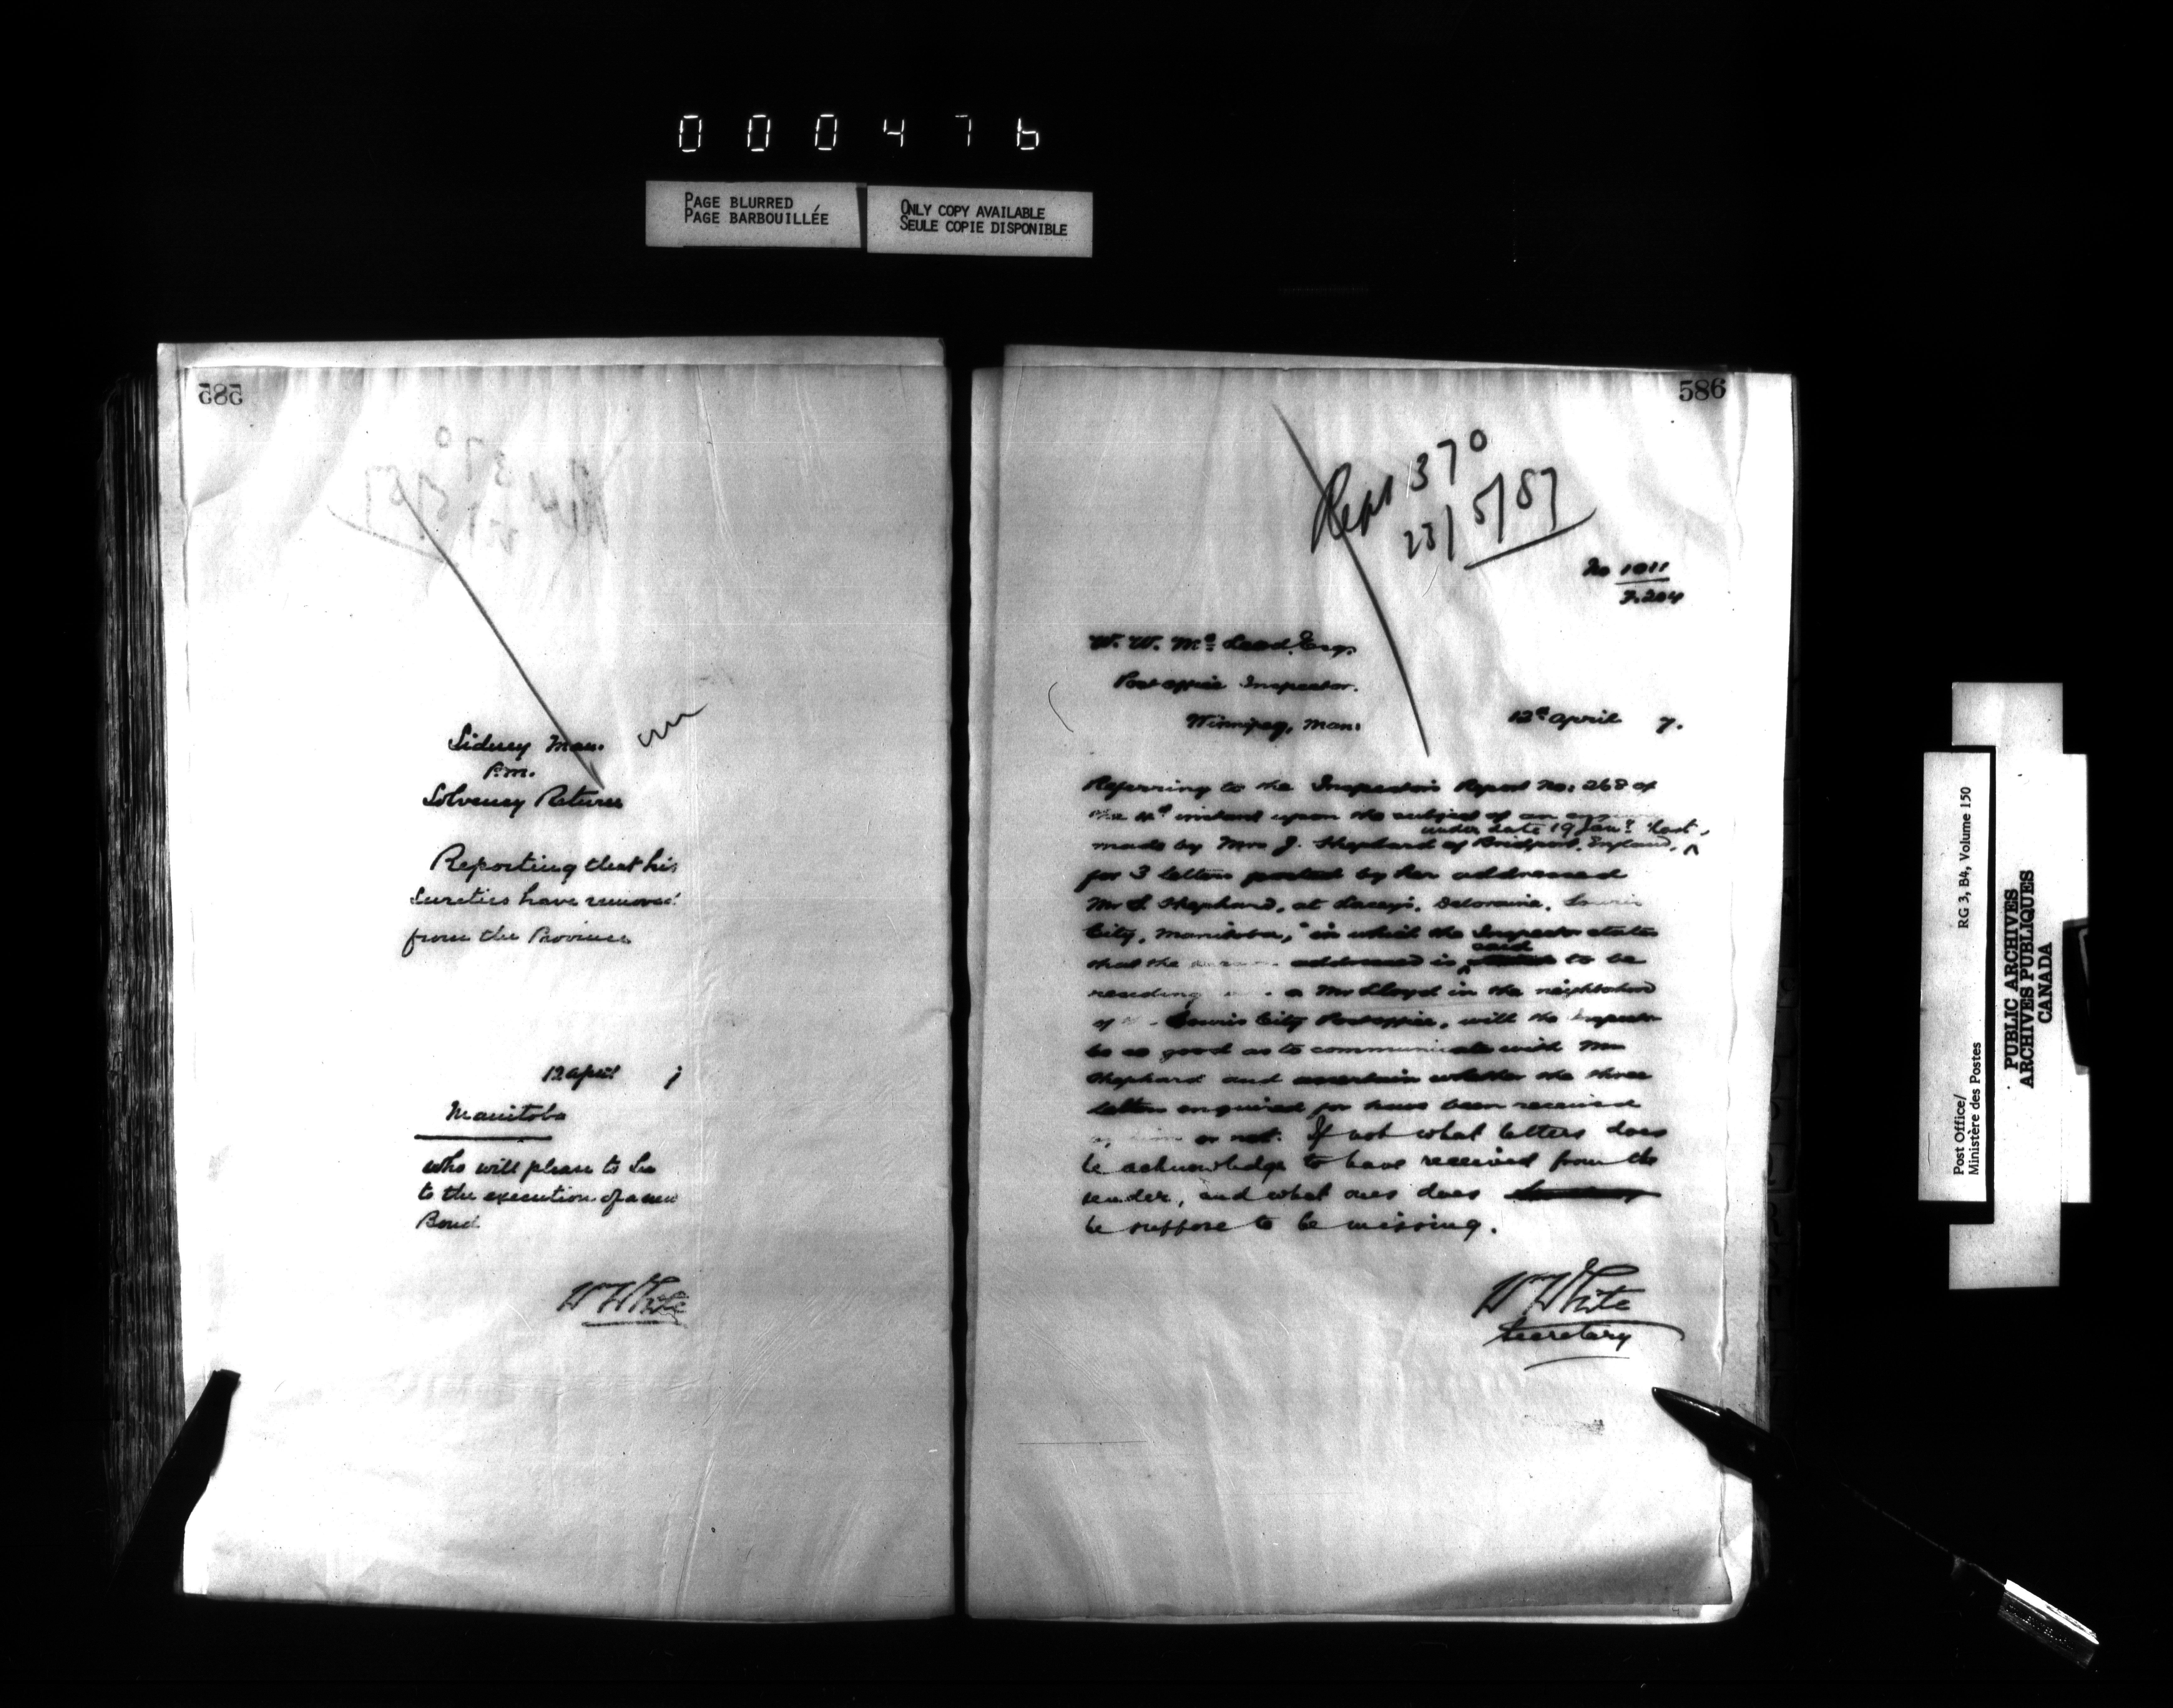 000476
PAGE BLURRED
PAGE BARBOUILLÉE
ONLY COPY AVAILABLE
SEULE COPIE DISPONIBLE
585
Sidney Man.
P.M.
Solvency Return
Reporting that his
Sureties have removed
from the Province
12 April 7
Manitoba
who will please to See
to the execution of a new
Bond
Wm White
586
Rept 370
23/5/87
No 1011
F.204
W. W. McLeod, Esq.
Post office Inspector.
Winnipeg, Man:
12th April 7.
Referring to the Inspector's Report No: 268 of
the 4th instant upon the subject of an
under date 19 Jany last,
made by Mrs J. Shephard of Bridport, England,
for 3 Letters posted by her addressed
Mr S. Shephard, at Lacey's, Deloraine, Souris
City, Manitoba," in which the Inspector states
said
that the addressed is to be
residing a Mr Lloyd in the neighborhood
of Souris City Post office, will the Inspector
be so good as to communicate with Mr
Shephard and ascertain whether the three
Letters enquired for have been received
or not. If not what letters does
he acknowledge to have received from the
sender, and what ones does
he suppose to be missing.
Wm White
Secretary
Post Office/
Ministère des Postes
RG 3, B4, Volume 150
PUBLIC ARCHIVES
ARCHIVES PUBLIQUES
CANADA